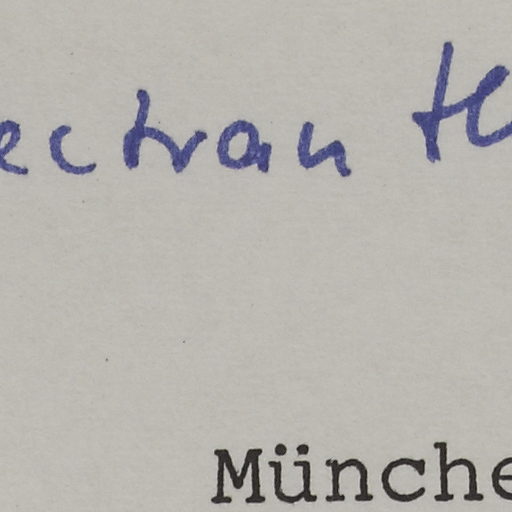 ectran
Münche